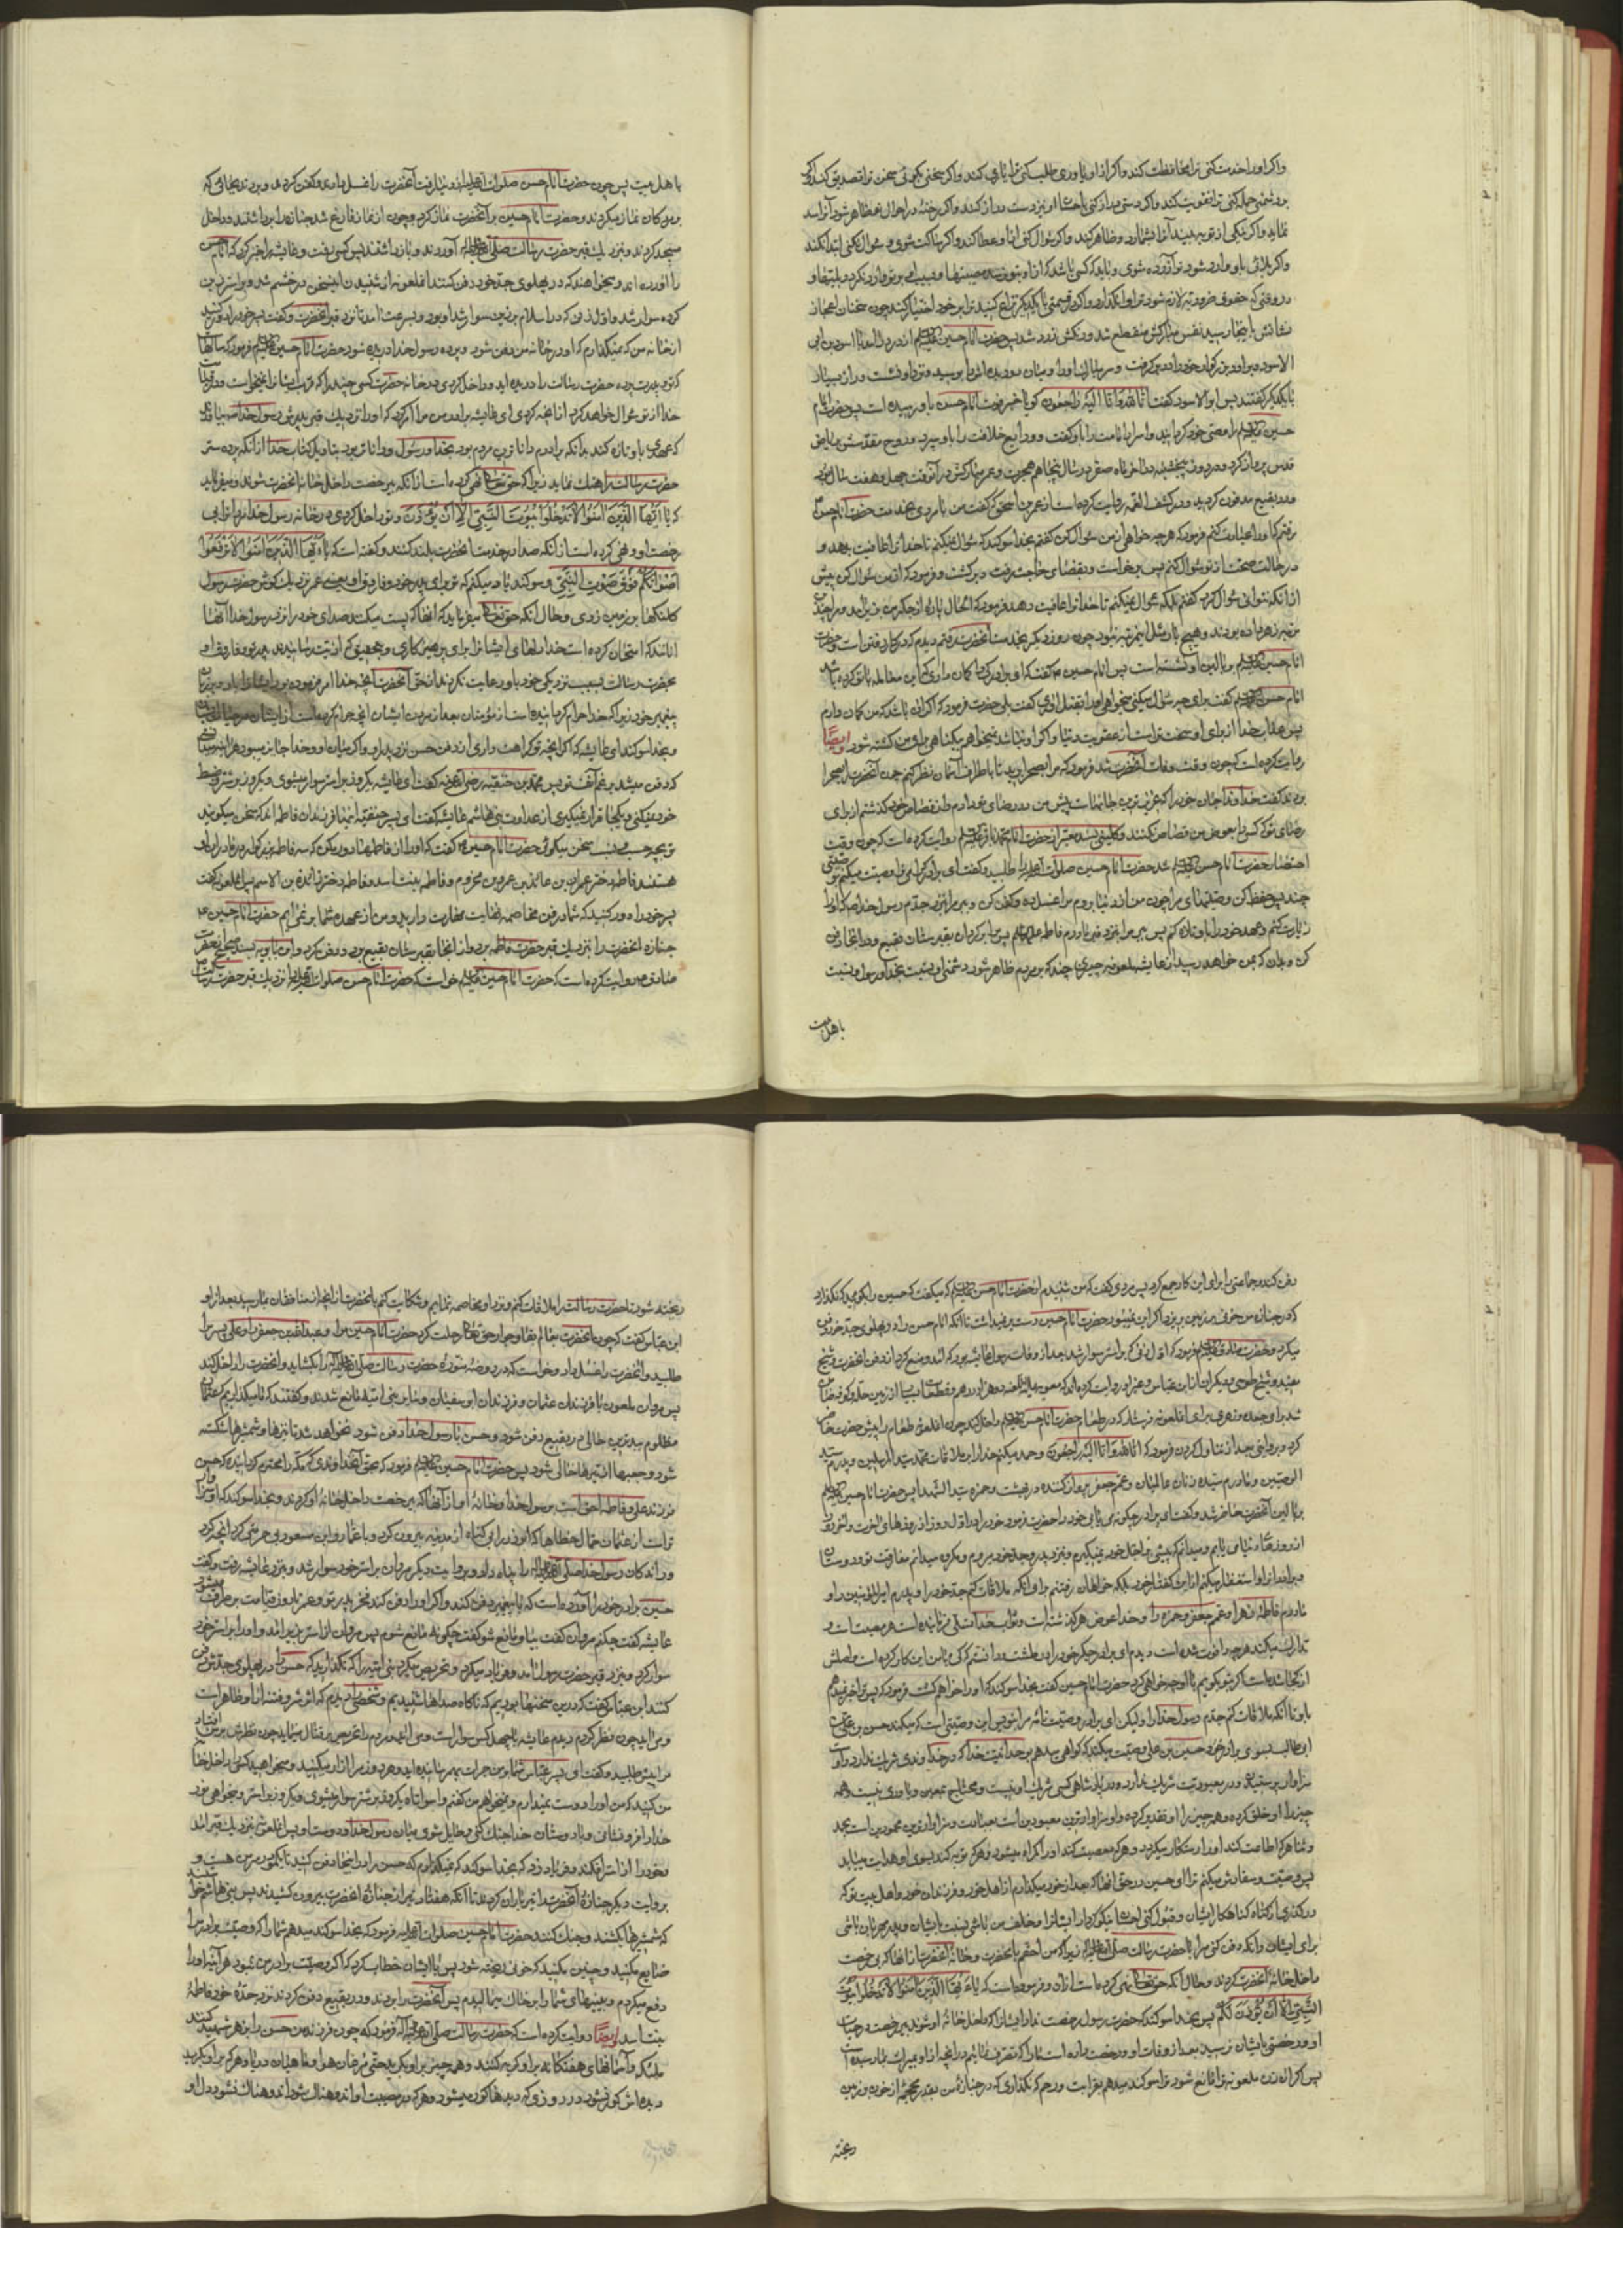 واکر اورا خدمت کنی ترا محافظت کند واکر از او یاوری طلب کنی ترا یاری کند واکر سخنی بکوئی سخن ترا تصدیق کند واکر
بر دشمنی حمله کنی ترا تقویت کند واکر دستی دراز کنی باحسان او نیز دست دراز کند واکر رخنه در احوال تو ظاهر شود آنرا سد
نماید واکر نیکی از تو به بیند آنرا بشمارد و ظاهر کند واکر سؤال کنی از او عطا کند واکر ساکت شوی و سؤال نکنی ابتدا کند
واکر بلائی باو وارد شود تو آزرده شوی و باید که کسی باشد که از او بتو نرسد مصیبتها و بسبب او بر تو وارد نکردد بلیتها و
در وقتی که حقوق ضروریه لازم شود ترا وانکذارد واکر در قسمتی با یکدیکر نزاع کنید ترا بر خود اختیار کند چون سخنان اعجاز
نشانش باینجا رسید نفس مبارکش منقطع شد و رنکش زرد شد پس حضرت امام حسین علیه السلم از در درآمد با اسود بن ابی
الاسود پس او برادر بزرکوار خود را در بر کرفت و سر مبارک او را و میان دو دیده اش را بوسید و نزد او نشست و راز بسیار
با یکدیکر کفتند پس ابو الاسود کفت انا لله وانا الیه راجعون کویا خبر فوت امام حسن باو رسیده است پس حضرت امام
حسین علیه السلم را وصی خود کردانید و اسرار امامت را باو کفت و ودایع خلافت را باو سپرد و روح مقدسش بریاض
قدس پرواز کرد در روز پنجشنبه در آخر ماه صفر در سال پنجاهم هجرت و عمر مبارکش در آنوقت چهل و هفت سال بود
و در بقیع مدفون کردید و در کشف الغمه روایت کرده است از عمر بن اسحق که کفت من با مردی بخدمت حضرت امام حسن
رفتم که او را عیادت کنم فرمود که هرچه خواهی از من سؤال کن کفتم بخدا سوکند که سؤال نمیکنم تا خدا ترا عافیت بدهد و
در حالت صحت از تو سؤال کنم پس برخواست و بقضای حاجت رفت و برکشت و فرمود که از من سؤال کن پیش
از آنکه نتوانی سؤال کرد کفتم بلکه سؤال نمیکنم تا خدا ترا عافیت دهد فرمود که الحال پاره از جکر من بزیر آمد و مرا چندین
مرتبه زهر داده بودند و هیچ بار مثل این مرتبه نبود چون روز دیکر بخدمت آنحضرت رفتم دیدم که در کار رفتن است و حضرت
امام حسین علیه السلم بر بالین او نشسته است پس امام حسین ع کفت که ای برادر کرا کمان داری که این معامله با تو کرده باشد
امام حسن علیه السلم کفت برای چه سؤال میکنی میخواهی او را بقتل آوری کفت بلی حضرت فرمود که اکر آن باشد که من کمان دارم
پس عذاب خدا از برای او سخت تر است از عقوبت دنیا واکر او نباشد نمیخواهم بیکناهی برای من کشته شود و ایضا
روایت کرده است که چون وقت وفات آنحضرت شد فرمود که مرا بصحرا برید تا باطراف آسمان نظر کنم چون آنحضرت را بصحرا
بردند کفت خداوندا جان خود را که عزیزترین جانهاست پیش من در رضای تو دادم و از قصاص خود کذشتم از برای
رضای تو که کسی را بعوض من قصاص نکنند و کلینی بسند معتبر از حضرت امام محمد باقر علیه السلم روایت کرده است که چون وقت
احتضار حضرت امام حسن علیه السلم شد حضرت امام حسین صلوات الله علیه را طلبید و کفت ای برادر کرامی ترا وصیت میکنم بوصیتی
چند پس حفظ کن وصیتهای مرا چون من از دنیا بروم مرا غسل ده و کفن کن و ببر مرا بنزد جدم رسول خدا ص که او را
زیارت کنم و عهد خود را باو تازه کنم پس ببر مرا بنزد قبر مادرم فاطمه علیها السلم پس مرا برکردان بقبرستان بقیع و در آنجا دفن
کن و بدان که بمن خواهد رسید از عایشه ملعونه چیزی چند که بر مردم ظاهر شود دشمنی او نسبت بخدا و رسول و نسبت
باهل بیت
باهل بیت پس چون حضرت امام حسن صلوات الله علیه از دنیا رفت آنحضرت را غسل دادند و کفن کردند و بردند بجائی که
بر مردکان نماز میکردند و حضرت امام حسین بر آنحضرت نماز کرد و چون از نماز فارغ شد جنازه را برداشتند و داخل
مسجد کردند و بنزدیک قبر حضرت رسالت صلی الله علیه وآله آوردند و باز داشتند پس کسی رفت و عایشه را خبر کرد که امام حسن
را آورده اند و میخواهند که در پهلوی جد خود دفن کنند آن ملعونه از شنیدن این سخن در خشم شد و بر استر زین
کرده سوار شد و اول زنی که در اسلام بر زین سوار شد او بود و بسرعت آمد تا نزد قبر آنحضرت و کفت پسر خود را دور کنید
از خانه من که نمیکذارم که او در خانه من دفن شود و پرده رسول خدا دریده شود حضرت امام حسین علیه السلم فرمود که سالهاست
که تو و پدرت پرده حضرت رسالت را دریده اید و داخل کردی در خانه حضرت کسی چند را که قرب ایشانرا نمیخواست و در قیامت
خدا از تو سؤال خواهد کرد از آنچه کردی ای عایشه برادر من مرا امر کرد که او را نزدیک قبر پدرش رسول خدا ص بیاورم
که عهدی باو تازه کند بدانکه برادرم داناترین مردم بود بخدا و رسول و داناتر بود بتاویل کتاب خدا از آنکه پرده ستر
حضرت رسالت را هتک نماید زیرا که حق تعالی نهی کرده است از آنکه بی رخصت داخل خانه آنحضرت شوند و میفرماید
که یا ایها الذین امنوا لا تدخلوا بیوت النبی الا ان یؤذن و تو داخل کردی در خانه رسول خدا مردانرا بی
رخصت او و نهی کرده است از آنکه صدا در خدمت آنحضرت بلند کنند و کفته است که یا ایها الذین امنوا لا ترفعوا
اصواتکم فوق صوت النبی و سوکند یاد میکنم که تو برای پدر خود و فاروق او یعنی عمر نزدیک کوش حضرت رسول
کلنکها بر زمین زدی و حال آنکه حق تعالی میفرماید که آنها که پست میکنند صدای خود را نزد رسول خدا آنها
آنانند که امتحان کرده است خدا دلهای ایشانرا برای پرهیزکاری و بحقیق که اذیت رسانیدند پدر تو و فاروق او
بحضرت رسالت بسبب نزدیکی خود باو و رعایت نکردند از حق آنحضرت آنچه خدا امر فرموده بود ایشانرا بآن بر زبان
پیغمبر خود زیرا که خدا حرام کردانیده است از مؤمنان بعد از مردن ایشان آنچه حرام کرده است از ایشان در حیات ایشان
و بخدا سوکند ای عایشه که اکر آنچه تو کراهت داری از دفن حسن نزد پدر او و اکر میان او و خدا جایز میبود هر آینه میدانستی
که دفن میشد بر رغم آنف تو پس محمد بن حنفیه رضی الله عنه کفت ای عایشه یکروز بر استر سوار میشوی و یکروز بر شتر و ضبط
خود نمیکنی و یکجا قرار نمیکیری از عداوت بنی هاشم عایشه کفت ای پسر حنفیه اینها فرزندان فاطمه اند که سخن میکویند
تو بچه حسب و نسب سخن میکوئی حضرت امام حسین ع کفت که او را از فاطمها دور مکن که سه فاطمه بزرکوار در مادران او
هستند فاطمه دختر عمران بن عائذ بن عمرو بن مخزوم و فاطمه بنت اسد و فاطمه دختر زائدة بن الاصم پس آن ملعونه کفت
پسر خود را دور کنید که شما در فن مخاصمه نهایت مهارت دارید و من از عهده شما بر نمی آیم حضرت امام حسین ع
جنازه آنحضرت را بنزدیک قبر حضرت فاطمه برد و از آنجا بقبرستان بقیع برد و دفن کرد و ابن بابویه بسند صحیح از حضرت
صادق ع روایت کرده است که حضرت امام حسین علیه السلم خواست که حضرت امام حسن صلوات الله علیه را نزدیک قبر حضرت رسالت
دفن کند و جماعتی را برای این کار جمع کرد پس مردی کفت که من شنیدم از حضرت امام حسن علیه السلم که میکفت که حسین را بکوئید که نکذارد
که در جنازه من خونی بر زمین بریزد اکر این نمیبود حضرت امام حسین دست بر نمیداشت تا آنکه امام حسن را در پهلوی جد خود دفن
میکرد و حضرت صادق علیه السلم فرمود که اول زنی که بر استر سوار شد بعد از وفات رسول عایشه بود که آمد و منع کرد از دفن آنحضرت و شیخ
مفید و شیخ طوسی و دیکران از ابن عباس و غیر او روایت کرده اند که معویه علیه اللعنه ده هزار درهم و قطعه های بسیار از زمین حله و کوفه ضامن
شد برای جعده و زهری برای آن ملعونه فرستاد که در طعام حضرت امام حسن علیه السلم داخل کند چون آن ملعونه طعام را پیش حضرت حاضر
کرد و بروایتی بعد از تناول کردن فرمود که انا لله وانا الیه راجعون و حمد میکنم خدا را بر ملاقات محمد سید المرسلین و پدرم سید
الوصیین و مادرم سیده زنان عالمیان و عمم جعفر پرواز کننده در بهشت و حمزه سید الشهدا پس حضرت امام حسین علیه السلم
بر بالین آنحضرت حاضر شد و کفت ای برادر چکونه می یابی خود را حضرت فرمود خود را در اول روز از روزهای آخرت و آخر روز
از روزهای دنیا می یابم و میدانم که پیشی بر اجل خود نمیکیرم و بنزد پدر و جد خود میروم و مکروه میدانم مفارقت تو و دوستان
و برادران را و استغفار میکنم از این کفتار خود بلکه خواهان رفتنم برای آنکه ملاقات کنم جد خود را و پدرم امیرالمؤمنین را و
مادرم فاطمه زهرا و عمم جعفر و حمزه را و خدا عوض هر کذشته است و ثواب خدا تسلی فرماینده است هر مصیبت را و
تدارک میکند هرچه را فوت شده است دیدم ای برادر جکر خود را در طشت و دانستم کی با من این کار کرده است و اصلش
از کجا شده است اکر بتو بکویم با او چه خواهی کرد حضرت امام حسین کفت بخدا سوکند که او را خواهم کشت فرمود که پس ترا خبر نمیدهم
باو تا آنکه ملاقات کنم جدم رسول خدا را ولیکن ای برادر وصیت نامه مرا بنویس این وصیتی است که میکند حسن بن علی بن
ابی طالب بسوی برادر خود حسین بن علی وصیت میکند که کواهی میدهم بوحدانیت خدا که در خداوندی شریک ندارد و او
سزاوار پرستیدنست و در معبودیت شریک ندارد و در پادشاهی کسی شریک او نیست و محتاج بمعین و یاوری نیست و همه
چیز را او خلق کرده و هر چیز را او تقدیر کرده و او سزاوارترین معبودین است بعبادت و سزاوارترین محمودین است بحمد
و ثنا هر که اطاعت کند او را رستکار میکردد و هر که معصیت کند او را کمراه میشود و هر که توبه کند بسوی او هدایت مییابد
پس وصیت و سفارش میکنم ترا ای حسین در حق آنها که بعد از خود میکذارم از اهل خود و فرزندان خود و اهل بیت تو که
درکذری از کناه کناهکار ایشان و قبول کنی احسان نیکوکردار ایشانرا و خلف من باشی نسبت بایشان و پدر مهربان باشی
برای ایشان و آنکه دفن کنی مرا با حضرت رسالت صلی الله علیه وآله زیرا که من احقم بآنحضرت و خانه آنحضرت از آنها که بی رخصت
داخل خانه آنحضرت کردند و حال آنکه حق تعالی نهی کرده است از آن و فرموده است که یا ایها الذین امنوا لا تدخلوا بیوت
النبی الا ان یؤذن لکم پس بخدا سوکند که حضرت رسول رخصت نداد ایشانرا که داخل خانه او شوند بی رخصت در حیات
او و رخصتی بایشان نرسید بعد از وفات او و رخصت داده است ما را که تصرف نمائیم در آنچه از او بمیراث بما رسیده است
پس اکر آن زن ملعونه ترا مانع شود ترا سوکند میدهم بقرابت و رحم که نکذاری که در جنازه من بقدر محجمه از خون بر زمین
ریخته
ریخته شود تا حضرت رسالت را ملاقات کنم و نزد او مخاصمه نمایم و شکایت کنم بآنحضرت از آنچه از منافقان بما رسید بعد از او
ابن عباس کفت که چون آنحضرت بعالم بقا و جوار حق تعالی رحلت کرد حضرت امام حسین مرا و عبدالله بن جعفر و علی پسر مرا
طلبید و آنحضرت را غسل داد و خواست که در روضه منوره حضرت رسالت صلی الله علیه وآله را بکشاید و آنحضرت را داخل کند
پس مروان ملعون با فرزندان عثمان و فرزندان ابو سفیان و سایر بنی امیه مانع شدند و کفتند که ما میکذاریم که عثمان
مظلوم ببدترین حالی در بقیع دفن شود و حسن با رسول خدا دفن شود نخواهد شد تا نیزها و شمشیرها شکسته
شود و جعبها از تیرها خالی شود پس حضرت امام حسین علیه السلم فرمود که بحق آن خداوندی که مکه را محترم کردانیده که حسن
فرزند علی و فاطمه احق است برسول خدا و خانه او از آنها که بی رخصت داخل خانه او کردند و بخدا سوکند که او سزاوارتر
است از عثمان حمال خطاها که ابوذر را بی کناه از مدینه بیرون کرد و با عمار و ابن مسعود بی حرمتی کرد آنچه کرد
و رانده کان رسول خدا صلی الله علیه وآله را پناه داد و بروایت دیکر مروان بر استر خود سوار شد و بنزد عایشه رفت و کفت
حسین برادر خود را آورده است که با پیغمبر دفن کند واکر او را دفن کند فخر پدر تو و عمر تا روز قیامت برطرف میشود
عایشه کفت چکنم مروان کفت بیا و مانع شو کفت چکونه مانع شوم پس مروان از استر بزیر آمد و او را بر استر خود
سوار کرد و بنزد قبر حضرت رسول آمد و فریاد میکرد و تحریص میکرد بنی امیه را که نکذارید که حسن را در پهلوی جدش دفن
کنند ابن عباس کفت که در این سخنها بودیم که ناکاه صداها شنیدیم و شخصی را دیدم که اثر شر و فتنه از او ظاهر است
و می آید چون نظر کردم دیدم عایشه با چهل کس سوار است و می آید و مردم را تحریص بر قتال مینماید چون نظرش بر من افتاد
مرا پیش طلبید و کفت ای پسر عباس شما بر من جرات بهم رسانیده اید و هر روز مرا آزار میکنید و میخواهید کسی را داخل خانه
من کنید که من او را دوست نمیدارم و نمیخواهم من کفتم وا سوأتاه یکروز بر شتر سوار میشوی و یکروز بر استر و میخواهی نور
خدا را فرو نشانی و با دوستان خدا جنک کنی و حایل شوی میان رسول خدا و دوست او پس آن ملعونه بنزدیک قبر آمد
و خود را از استر افکند و فریاد زد که بخدا سوکند که نمیکذارم که حسن را در اینجا دفن کنید تا یکمو در سر من هست و
بروایت دیکر جنازه آنحضرت را تیر باران کردند تا آنکه هفتاد تیر از جنازه آنحضرت بیرون کشیدند پس بنی هاشم خواستند
که شمشیرها بکشند و جنک کنند حضرت امام حسین صلوات الله علیه فرمود که بخدا سوکند میدهم شما را که وصیت برادر مرا
ضایع مکنید و چنین مکنید که خونی ریخته شود پس با ایشان خطاب کرد که اکر وصیت برادر من نمیبود هر آینه او را
دفع میکردم و بینیهای شما را بر خاک میمالیدم پس آنحضرت را بردند و در بقیع دفن کردند نزد جده خود فاطمه
بنت اسد و ایضا روایت کرده است که حضرت رسالت صلی الله علیه وآله فرمود که چون فرزند من حسن را بزهر شهید کنند
ملئکه و آسمانهای هفتکانه بر او کریه کنند و همه چیز بر او بکرید حتی مرغان هوا و ماهیان دریا و هر که بر او بکرید
دیده اش کور نشود در روزی که دیدها کور میشود و هر که بر مصیبت او اندوهناک شود اندوهناک نشود دل او